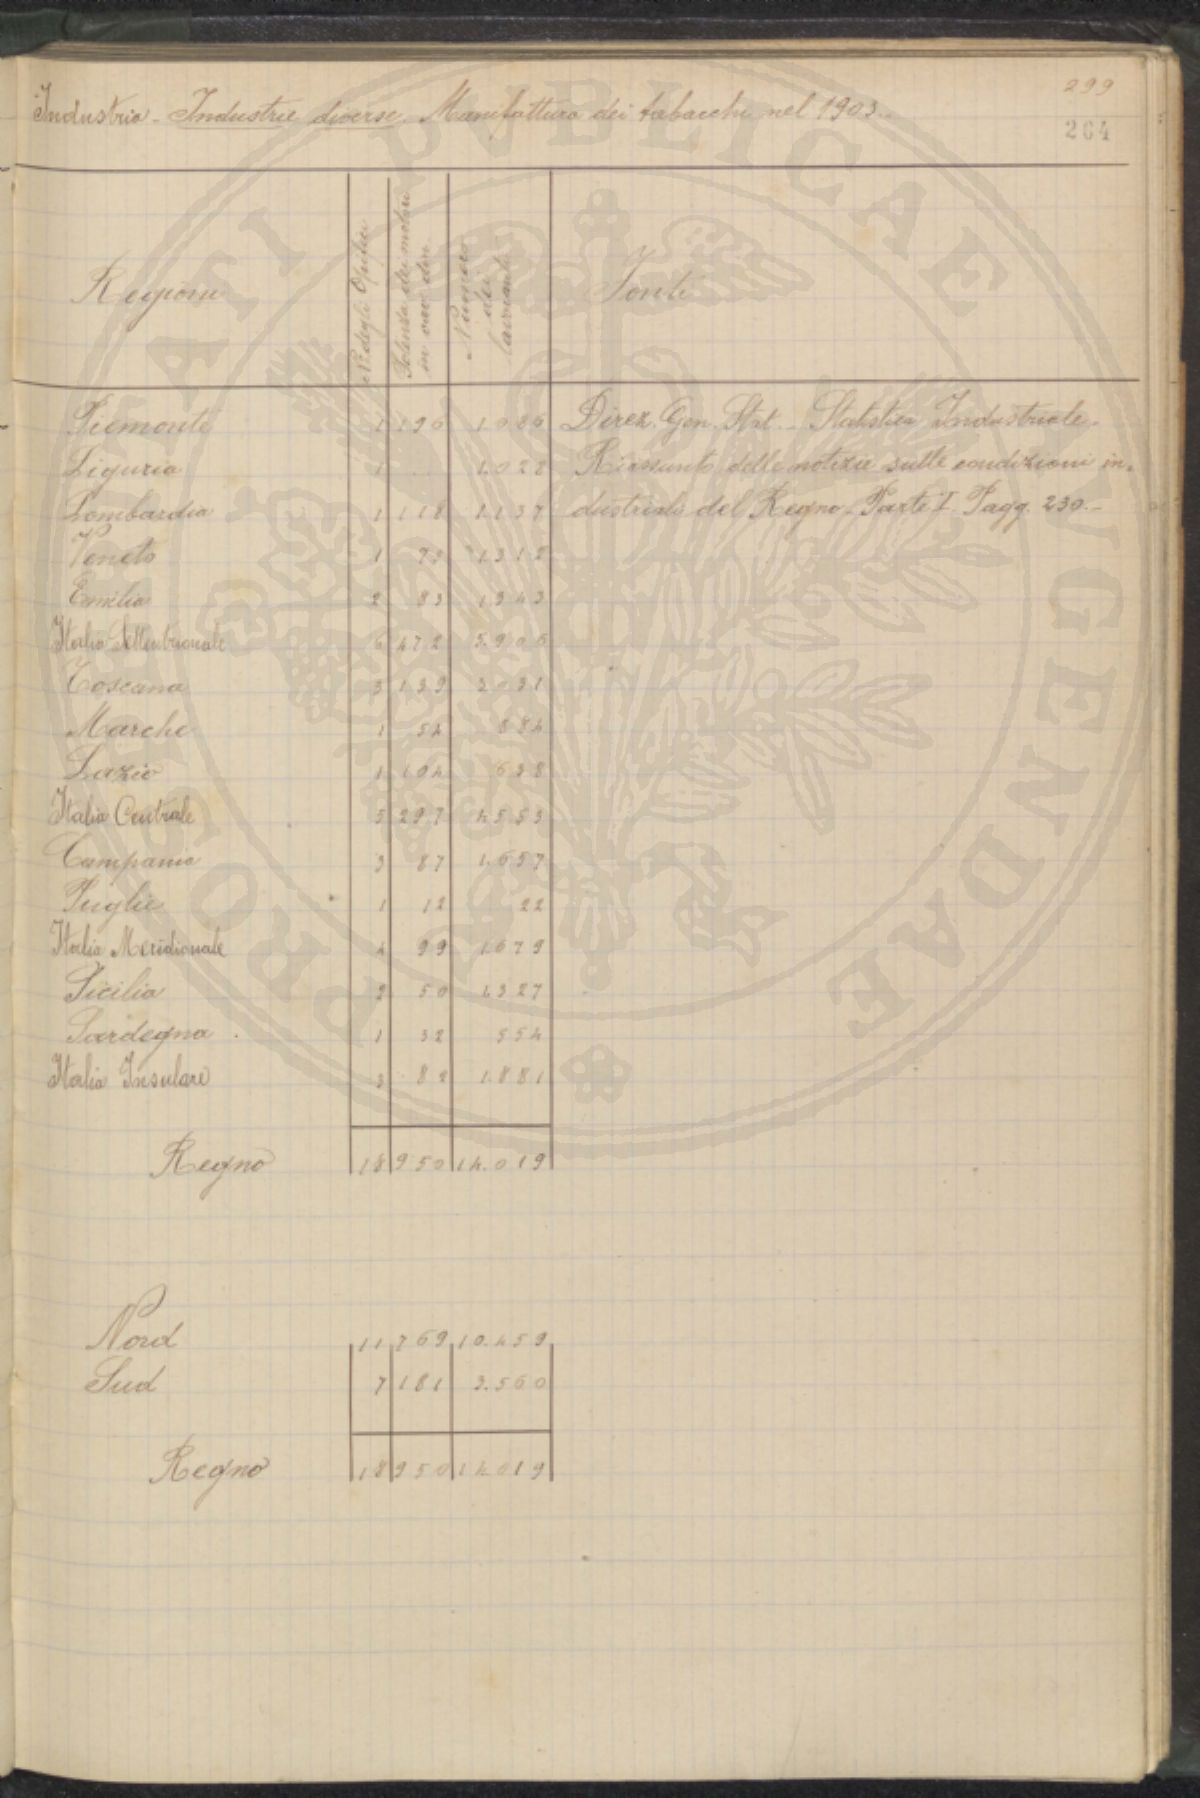 299
Industria - Industrie diverse. Manifattura dei tabacchi nel 1903.
264
Regioni | N° degli Opifici | Potenza dei motori in cav. din. | Numero dei lavoranti | Fonti
Piemonte 1 196 1.086 Direz. Gen. Stat. - Statistica Industriale.
Liguria 1 1.028 Riassunto delle notizie sulle condizioni in-
Lombardia 1 118 1.137 dustriali del Regno. Parte I. Pagg. 230.-
Veneto 1 75 1.312
Emilia 2 83 1.343
Italia Settentrionale 6 472 5.906
Toscana 3 139 3.031
Marche 1 54 884
Lazio 1 104 638
Italia Centrale 5 297 4.553
Campania 3 87 1.657
Puglie 1 12 22
Italia Meridionale 4 99 1.679
Sicilia 2 50 1.327
Sardegna 1 32 554
Italia Insulare 3 82 1.881
Regno 18 950 14.019
Nord 11 769 10.459
Sud 7 181 3.560
Regno 18 950 14.019
PROSPERITATI PVBLICAE AVGENDAE